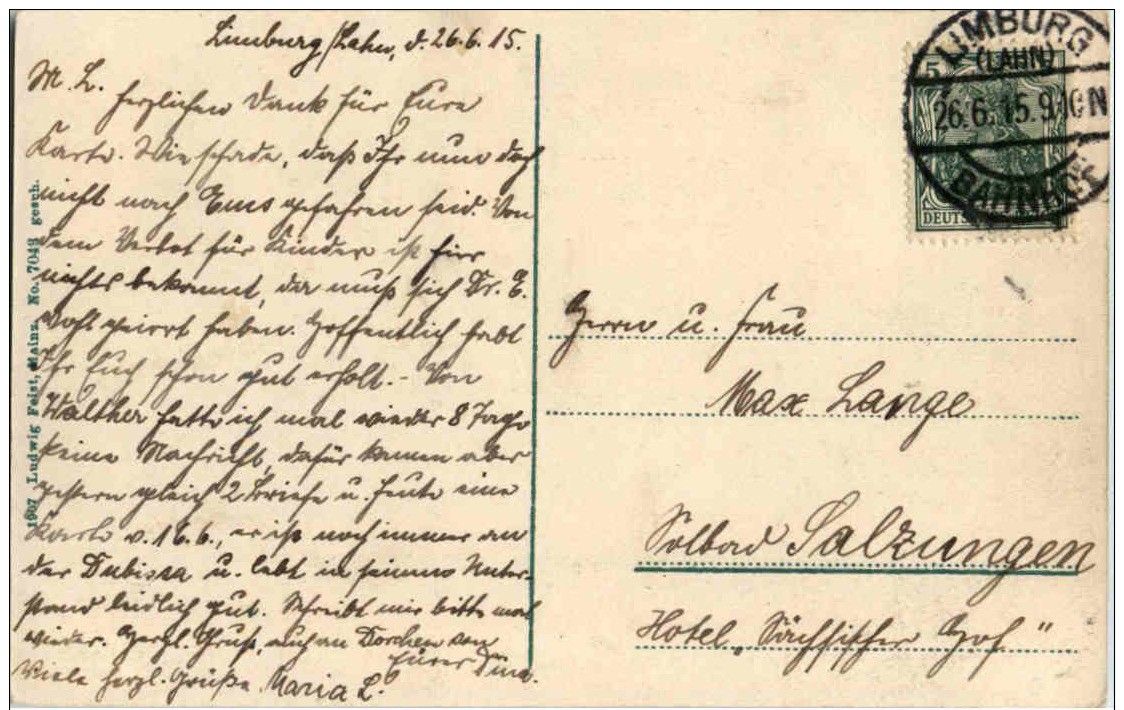 Limburg/Lahn, d. 26.6.15.
M. L.
Herzlichen Dank für Eure
Karte. Wie schade, daß Ihr nun doch
nicht nach Ems gefahren seid. Von
dem Verbot für Kinder ist hier
nichts bekannt, da muß sich Dr. E.
wohl geirrt haben. Hoffentlich habt
Ihr Euch schon gut erholt. - Von
Walther hatte ich mal wieder 8 Tage
keine Nachricht, dafür kamen aber
gestern gleich 2 Briefe u. heute eine
Karte v. 16.6., er ist noch immer an
der Dubissa u. lebt in seinem Unter-
stand leidlich gut. Schreibt mir bitte mal
wieder. Herzl. Gruß, auch an Dorchen von
Eurer
Viele herzl. Grüße Maria L.
1907 Ludwig Feist, Mainz. No. 7043 gesch.
LIMBURG
(LAHN)
26.6.15.9-10N
BAHNHOF
5
DEUTS
Herrn u. Frau
Max Lange
Solbad Salzungen
Hotel „Sächsischer Hof"